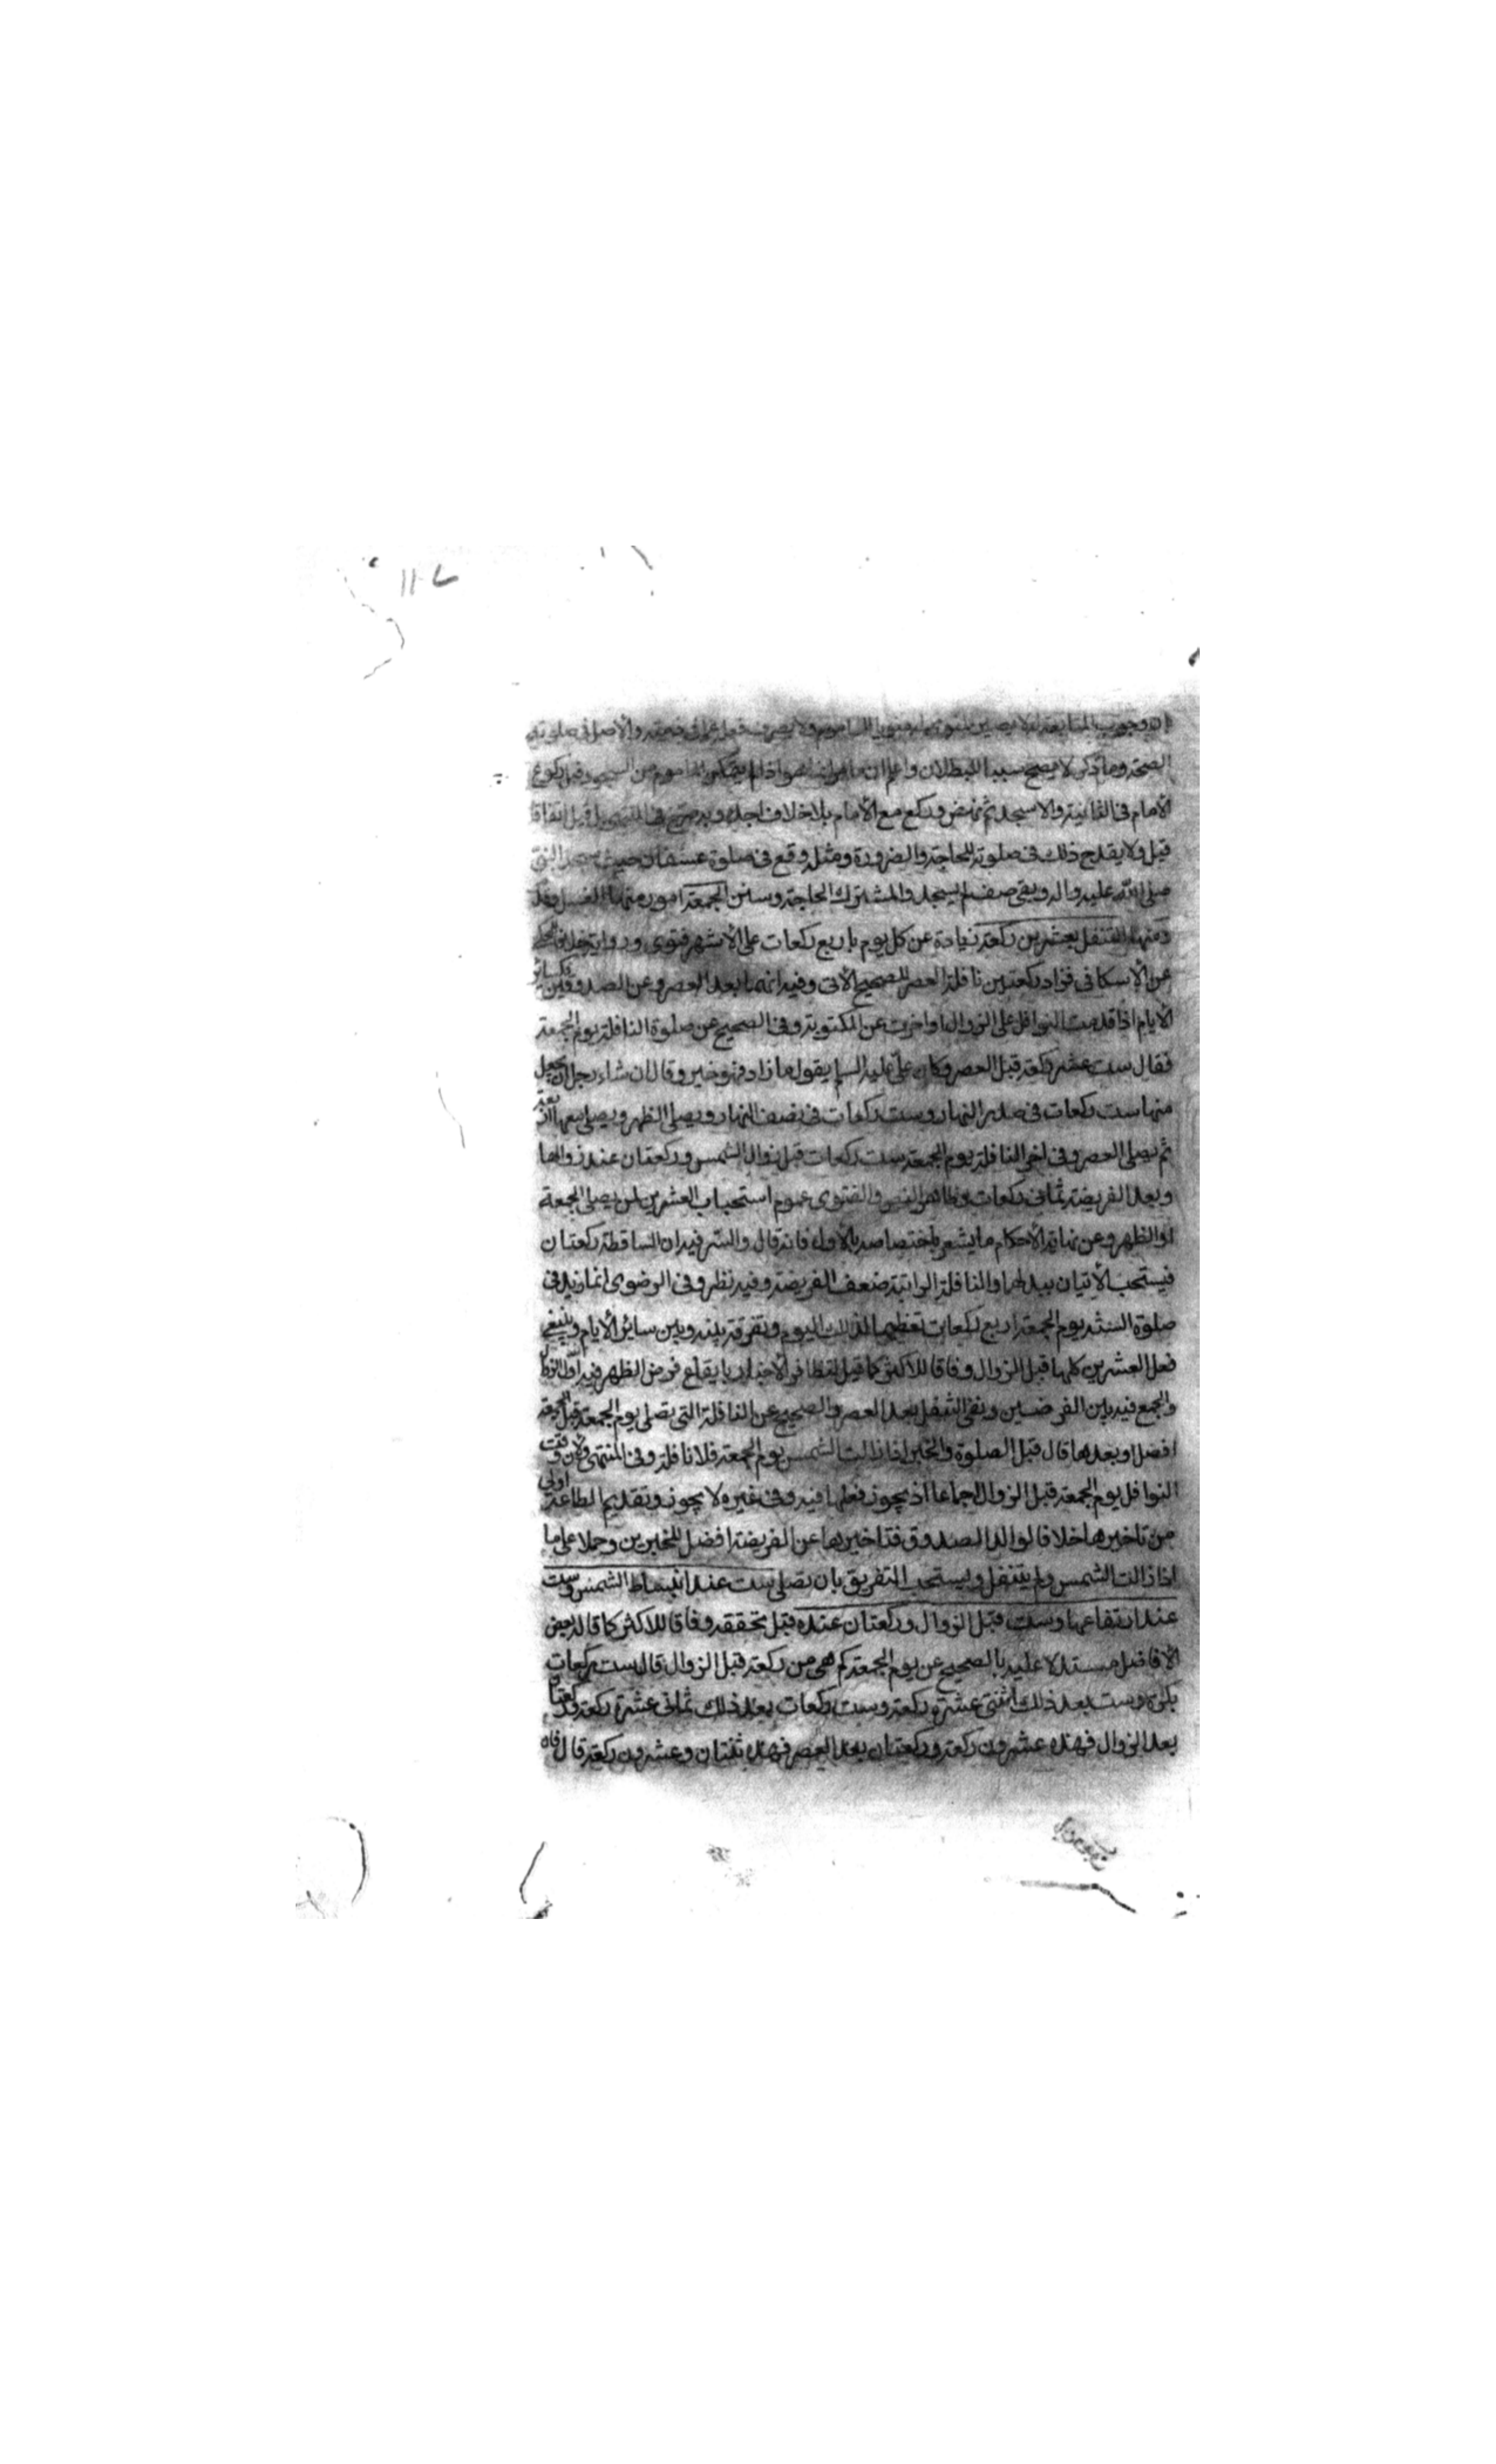 ١١٠٧
ان وجوب المتابعة له لا يصير المنوي للامام منويا للماموم ولا يصرف فعله عما في ذمته والاصل في صلوته
الصحة وما ذكر لا يصح سببا للبطلان واعلم ان ما مر انما هو اذا لم يتمكن الماموم من السجود قبل ركوع
الامام في الثانية والا سجد ثم نهض وركع مع الامام بلا خلاف اجده وبه صرح في المنتهى بل قيل اتفاقا
قيل ولا يقدح ذلك في صلوته للحاجة والضرورة ومثله وقع في صلوة عسفان حيث سجد النبي
صلى الله عليه واله وبقي صف لم يسجد والمشترك الحاجة وسنن الجمعة امور منها الغسل وقد
ومنها التنفل بعشرين ركعة زيادة عن كل يوم باربع ركعات على الاشهر فتوى ورواية خلافا للمحكي
عن الاسكافي فزاد ركعتين نافلة العصر للصحيح الاتي وفيه انهما بعد العصر وعن الصدوقين فكسائر
الايام اذا قدمت النوافل على الزوال او اخرت عن المكتوبة وفي الصحيح عن صلوة النافلة يوم الجمعة
فقال ست عشر ركعة قبل العصر وكان علي عليه السلم يقول ما زاد فهو خير وقال ان شاء رجل ان يجعل
منها ست ركعات في صدر النهار وست ركعات في نصف النهار ويصلي الظهر ويصلي معها اربعة
ثم يصلي العصر وفي اخر النافلة يوم الجمعة ست ركعات قبل زوال الشمس وركعتان عند زوالها
وبعد الفريضة ثماني ركعات وظاهر النص والفتوى عموم استحباب العشرين لمن يصلي الجمعة
او الظهر وعن نهاية الاحكام ما يشعر باختصاصه بالاول فانه قال والسر فيه ان الساقطة ركعتان
فيستحب الاتيان ببدلهما والنافلة الراتبة ضعف الفريضة وفيه نظر وفي الرضوي انما زيد في
صلوة السنة يوم الجمعة اربع ركعات تعظيما لذلك اليوم وتفرقة بينه وبين سائر الايام وينبغي
فعل العشرين كلها قبل الزوال وفاقا للاكثر كما قيل لتظافر الاخبار بايقاع فرض الظهر فيه اول الزوال
والجمع فيه بين الفرضين ونفي التنفل بعد العصر والصحيح عن النافلة التي تصلى يوم الجمعة قبل الجمعة
افضل او بعدها قال قبل الصلوة والخبر اذا زالت الشمس يوم الجمعة فلا نافلة وفي المنتهى ولان وقت
النوافل يوم الجمعة قبل الزوال اجماعا اذ يجوز فعلها فيه وفي غيره لا يجوز وتقديم الطاعة اولى
من تاخيرها خلافا لوالد الصدوق فتاخيرها عن الفريضة افضل للخبرين وحملا على ما
اذا زالت الشمس ولم يتنفل ويستحب التفريق بان تصلي ست عند انبساط الشمس وست
عند ارتفاعها وست قبل الزوال وركعتان عنده قبل تحققه وفاقا للاكثر كما قاله بعض
الافاضل مستدلا عليه بالصحيح عن يوم الجمعة كم هي من ركعة قبل الزوال قال ست ركعات
بكرة وست بعد ذلك اثنتي عشرة ركعة وست ركعات بعد ذلك ثماني عشرة ركعة وركعتان
بعد الزوال فهذه عشرون ركعة وركعتان بعد العصر فهذه ثنتان وعشرون ركعة قال فاه